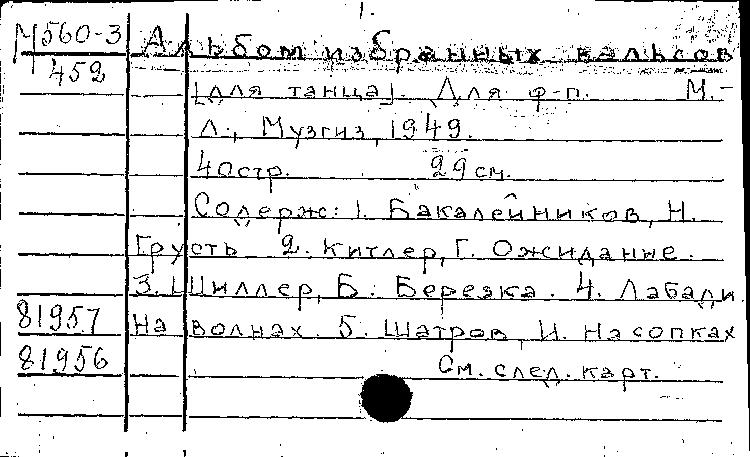 1.
М560-3 Альбом избранных вальсов
452 [для танца]. Для ф-п. М.-
Л., Музгиз, 1949.
40стр. 29см.
Содерж: 1. Бакалейников, Н.
Грусть 2. Китлер, Г. Ожидание.
3. Шиллер, Б. Березка. 4. Лабади.
81957 На волнах. 5. Шатров, И. На сопках
81956 См. след. карт.